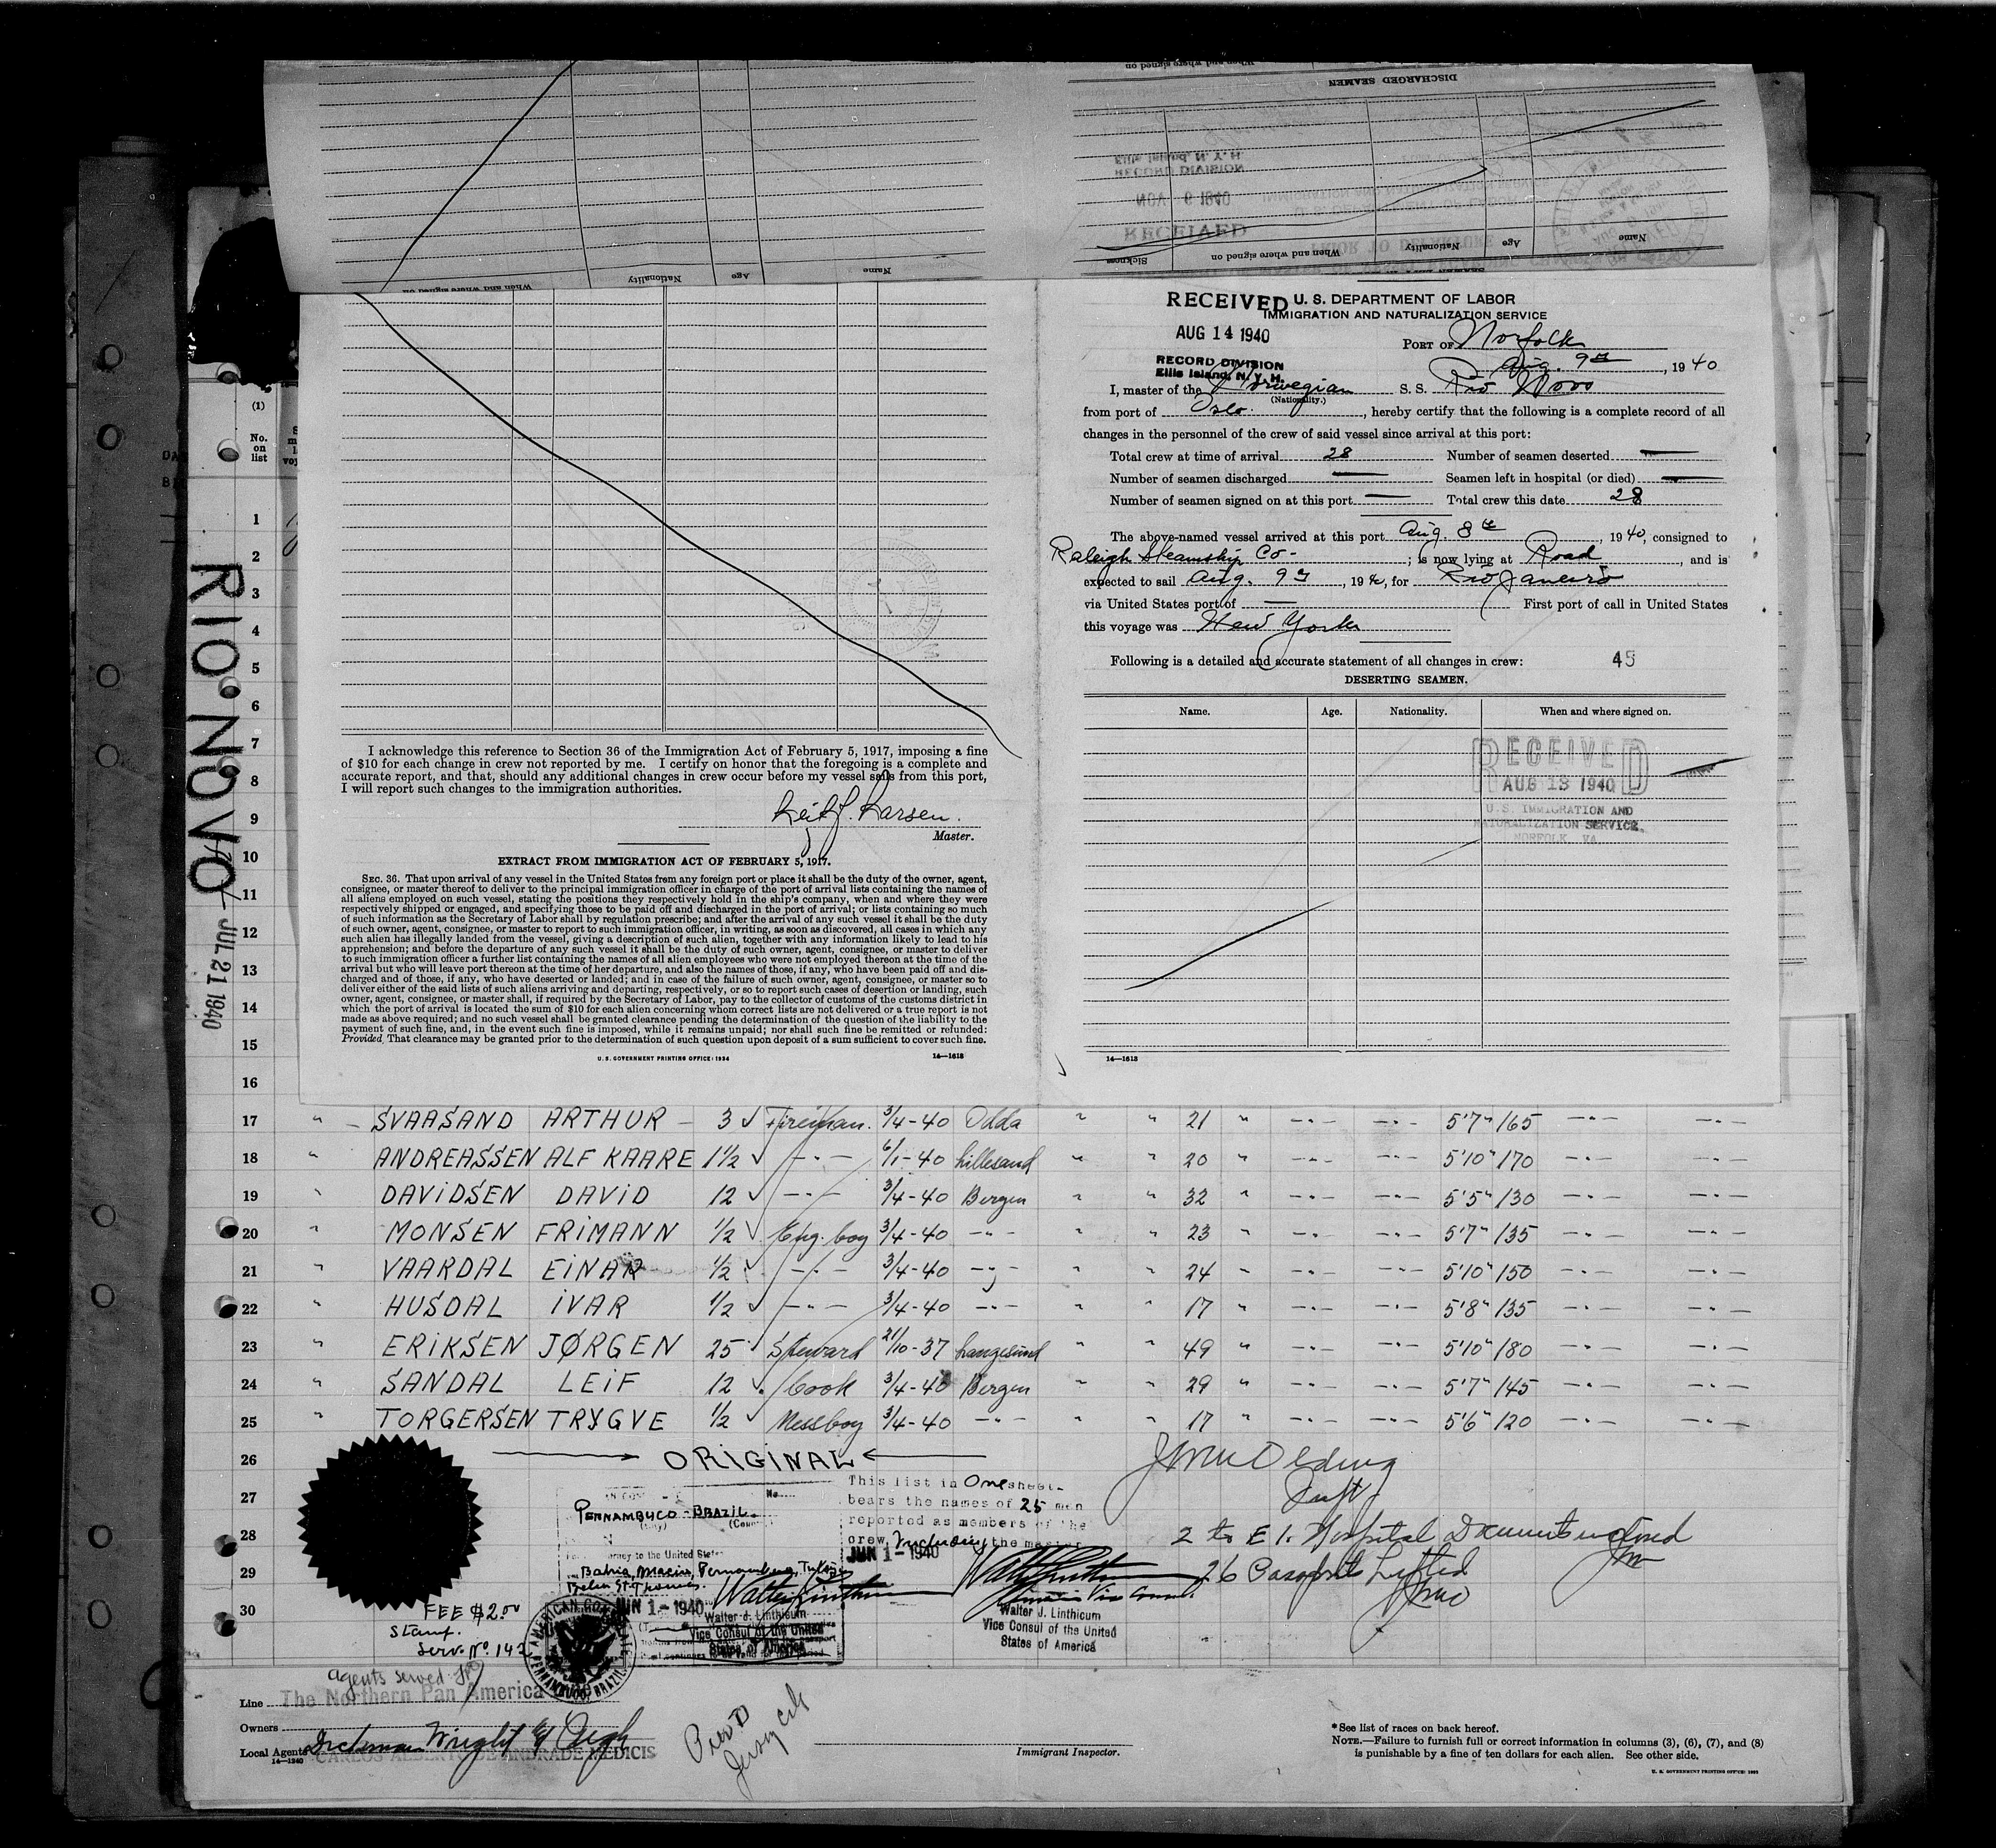 When and where signed on
DISCHARGED SEAMEN
Ellis Island, N. Y. H.
RECORD DIVISION
NOV 6 1940
RECEIVED
PRIOR TO DEPARTURE
Name
Age
Nationality
When and where signed on
Sickness
Name
Age
Nationality
When and where signed on
RECEIVED
AUG 14 1940
RECORD DIVISION
Ellis Island, N. Y. H.
U. S. DEPARTMENT OF LABOR
IMMIGRATION AND NATURALIZATION SERVICE
PORT OF Norfolk
Aug. 9th, 1940
I, master of the Norwegian S. S. Rio Novo
(Nationality.)
from port of Oslo., hereby certify that the following is a complete record of all
changes in the personnel of the crew of said vessel since arrival at this port:
Total crew at time of arrival 28 Number of seamen deserted —
Number of seamen discharged — Seamen left in hospital (or died) —
Number of seamen signed on at this port — Total crew this date 28
The above-named vessel arrived at this port Aug. 8th, 1940, consigned to
Raleigh Steamship Co- ; is now lying at Road, and is
expected to sail Aug. 9th, 1940, for Rio Janeiro
via United States port of — First port of call in United States
this voyage was New York
Following is a detailed and accurate statement of all changes in crew: 45
DESERTING SEAMEN.
Name. Age. Nationality. When and where signed on.
RECEIVED
AUG 13 1940
U. S. IMMIGRATION AND
NATURALIZATION SERVICE,
NORFOLK, VA.
14—1618
I acknowledge this reference to Section 36 of the Immigration Act of February 5, 1917, imposing a fine
of $10 for each change in crew not reported by me. I certify on honor that the foregoing is a complete and
accurate report, and that, should any additional changes in crew occur before my vessel sails from this port,
I will report such changes to the immigration authorities.
Leif J. Larsen.
Master.
EXTRACT FROM IMMIGRATION ACT OF FEBRUARY 5, 1917.
SEC. 36. That upon arrival of any vessel in the United States from any foreign port or place it shall be the duty of the owner, agent,
consignee, or master thereof to deliver to the principal immigration officer in charge of the port of arrival lists containing the names of
all aliens employed on such vessel, stating the positions they respectively hold in the ship's company, when and where they were
respectively shipped or engaged, and specifying those to be paid off and discharged in the port of arrival; or lists containing so much
of such information as the Secretary of Labor shall by regulation prescribe; and after the arrival of any such vessel it shall be the duty
of such owner, agent, consignee, or master to report to such immigration officer, in writing, as soon as discovered, all cases in which any
such alien has illegally landed from the vessel, giving a description of such alien, together with any information likely to lead to his
apprehension; and before the departure of any such vessel it shall be the duty of such owner, agent, consignee, or master to deliver
to such immigration officer a further list containing the names of all alien employees who were not employed thereon at the time of the
arrival but who will leave port thereon at the time of her departure, and also the names of those, if any, who have been paid off and dis-
charged and of those, if any, who have deserted or landed; and in case of the failure of such owner, agent, consignee, or master so to
deliver either of the said lists of such aliens arriving and departing, respectively, or so to report such cases of desertion or landing, such
owner, agent, consignee, or master shall, if required by the Secretary of Labor, pay to the collector of customs of the customs district in
which the port of arrival is located the sum of $10 for each alien concerning whom correct lists are not delivered or a true report is not
made as above required; and no such vessel shall be granted clearance pending the determination of the question of the liability to the
payment of such fine, and, in the event such fine is imposed, while it remains unpaid; nor shall such fine be remitted or refunded:
Provided, That clearance may be granted prior to the determination of such question upon deposit of a sum sufficient to cover such fine.
U. S. GOVERNMENT PRINTING OFFICE: 1934 14—1618
RIO NOVO
JUL 21 1940
(1)
No.
on
list
1
2
3
4
5
6
7
8
9
10
11
12
13
14
15
16
17 " SVAASAND ARTHUR 3 Fireman. 3/4-40 Odda " " 21 " -"- -"- 5'7" 165 -"- -"-
18 " ANDREASSEN ALF KAARE 1½ -"- 6/1-40 Lillesand " " 20 " -"- -"- 5'10" 170 -"- -"-
19 " DAVIDSEN DAVID 12 -"- 3/4-40 Bergen " " 32 " -"- -"- 5'5" 130 -"- -"-
20 " MONSEN FRIMANN ½ Eng. boy 3/4-40 -"- " " 23 " -"- -"- 5'7" 135 -"- -"-
21 " VAARDAL EINAR ½ -"- 3/4-40 -"- " " 24 " -"- -"- 5'10" 150 -"- -"-
22 " HUSDAL IVAR ½ -"- 3/4-40 -"- " " 17 " -"- -"- 5'8" 135 -"- -"-
23 " ERIKSEN JØRGEN 25 Steward 21/10-37 Langesund " " 49 " -"- -"- 5'10" 180 -"- -"-
24 " SANDAL LEIF 12 Cook 3/4-40 Bergen " " 29 " -"- -"- 5'7" 145 -"- -"-
25 " TORGERSEN TRYGVE ½ Messboy 3/4-40 -"- " " 17 " -"- -"- 5'6" 120 -"- -"-
26 ORIGINAL
27
28
29
30
No.
PERNAMBUCO - BRAZIL.
Journey to the United States
Bahia, Maceio, Pernambuco,
Belem St Thomas.
JUN 1 - 1940
Walter J. Linthicum
Vice Consul of the United
States of America
AMERICAN CONSULATE
PERNAMBUCO, BRAZIL
This list in One sheet-
bears the names of 25 men
reported as members of the
crew, including the master
JUN 1 - 1940
Walter J. Linthicum
Vice Consul of the United
States of America
2 to E I. Hospital Documents enclosed
26 Passports Lifted
FEE $2.00
Stamp.
Serv. No. 142
agents served
Line The Northern Pan America
Owners
Local Agents Dichman Wright & Pugh
14—1240
Pier D
Jersey City
Immigrant Inspector.
*See list of races on back hereof.
NOTE.—Failure to furnish full or correct information in columns (3), (6), (7), and (8)
is punishable by a fine of ten dollars for each alien. See other side.